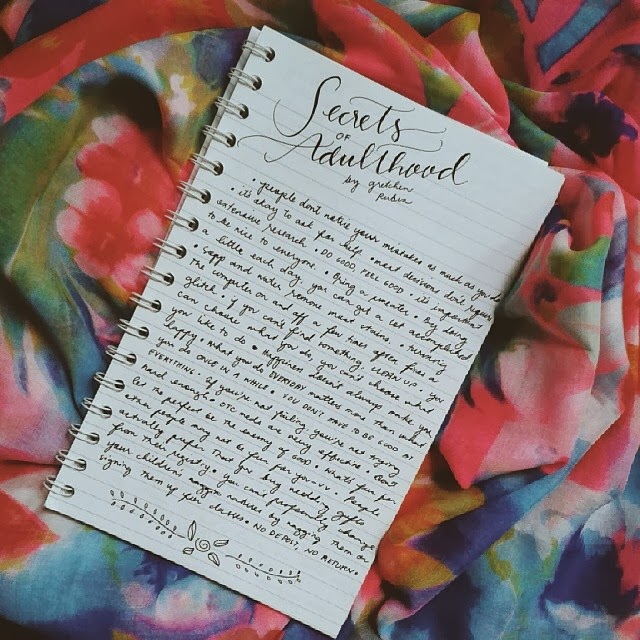 Secrets
OF
Adulthood
by gretchen
Rubin
• people don't notice your mistakes as much as you do
• it's okay to ask for help. • most decisions don't require
extensive research. • DO GOOD, FEEL GOOD. • it's important
to be nice to everyone. • Bring a sweater. • By doing
a little each day, you can get a lot accomplished.
• Soap and water remove most stains. • turning
the computer on and off a few times often fixes a
glitch. • If you can't find something, CLEAN UP. • you
can choose what you do, you can't choose what
you like to do. • Happiness doesn't always make you feel
happy. • What you do EVERYDAY matters more than what
you do ONCE IN A WHILE. • YOU DON'T HAVE TO BE GOOD AT
EVERYTHING. • If you're not failing, you're not trying
hard enough. • OTC meds are very effective. • Don't
let the perfect be the enemy of GOOD. • What's fun for
other people may not be fun for you-v.v. • People
actually prefer that you buy wedding gifts
from their registry. • You can't profoundly change
your children's natures by nagging them or
signing them up for classes. • NO DEPOSIT, NO RETURN.